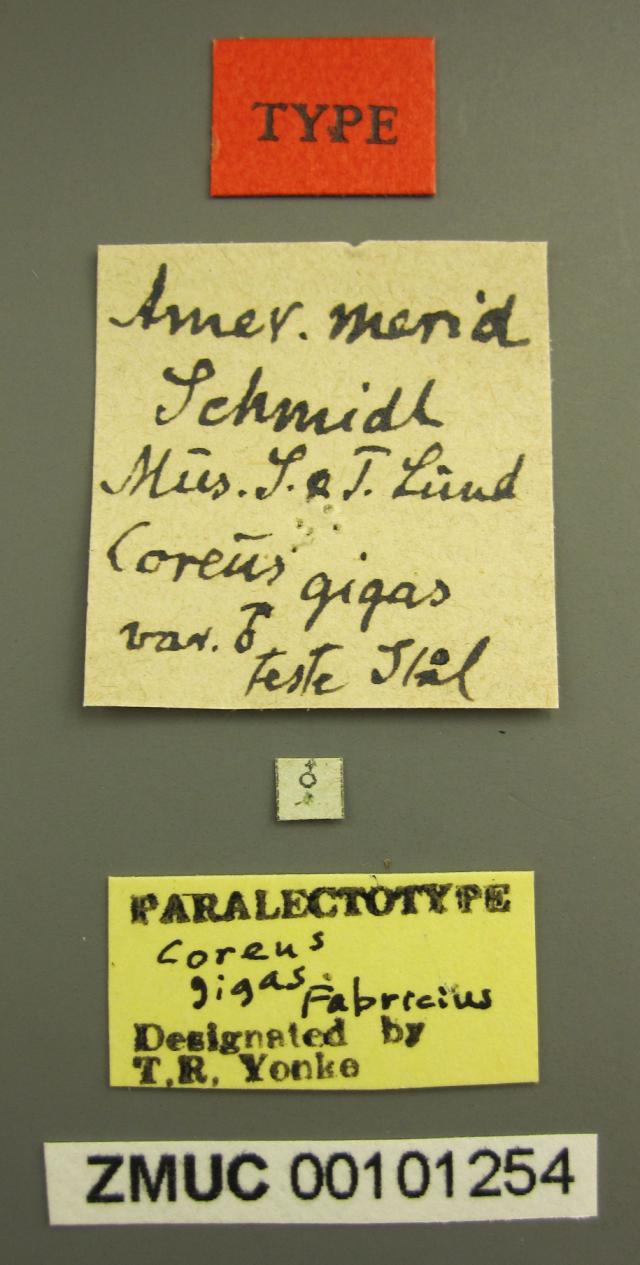 TYPE
Amer. merid
Schmidt
Mūs. S. & T. Lūnd
Coreūs gigas
var. ♂
teste Stål
♂
PARALECTOTYPE
Coreus
gigas Fabricius
Designated by
T.R. Yonke
ZMUC 00101254